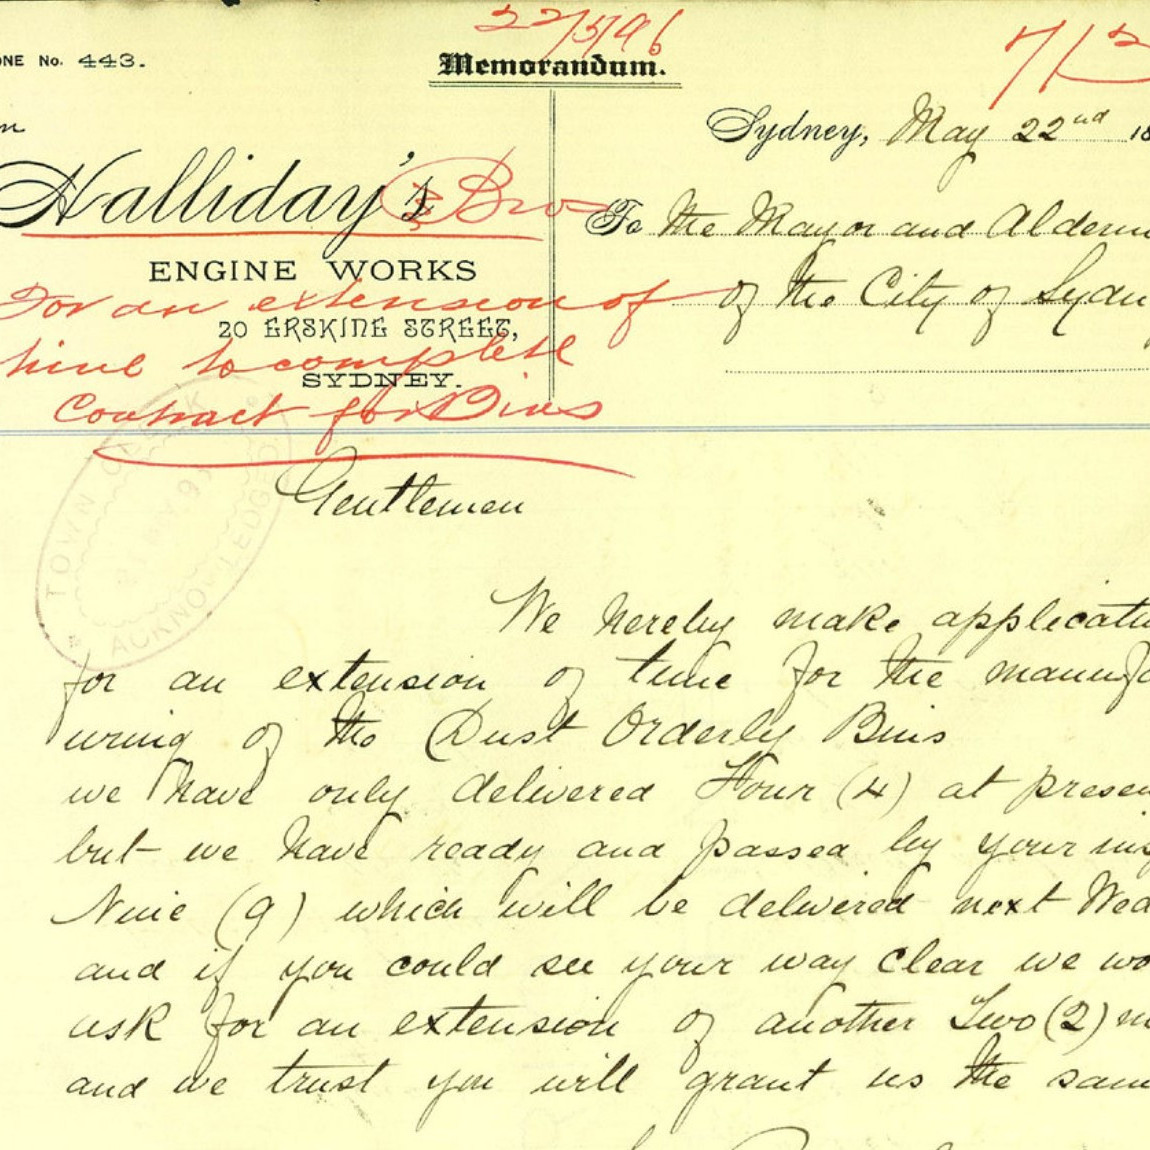 22/5/96
ONE No. 443.
Memorandum.
Sydney, May 22nd 18
Halliday's Bros
To The Mayor and Alderm
ENGINE WORKS
For an extension of
of the City of Sydn
20 ERSKINE STREET,
time to complete
SYDNEY.
Contract for Bins
TOWN CLERK
ACKNOWLEDGED
Gentlemen
We hereby make applicati
for an extension of time for the manufa
uring of the Dust Orderly Bins
we have only delivered Four (4) at presen
but we have ready and passed by your ins
Nine (9) which will be delivered next Wed
and if you could see your way clear we wo
ask for an extension of another Two (2) m
and we trust you will grant us the sam